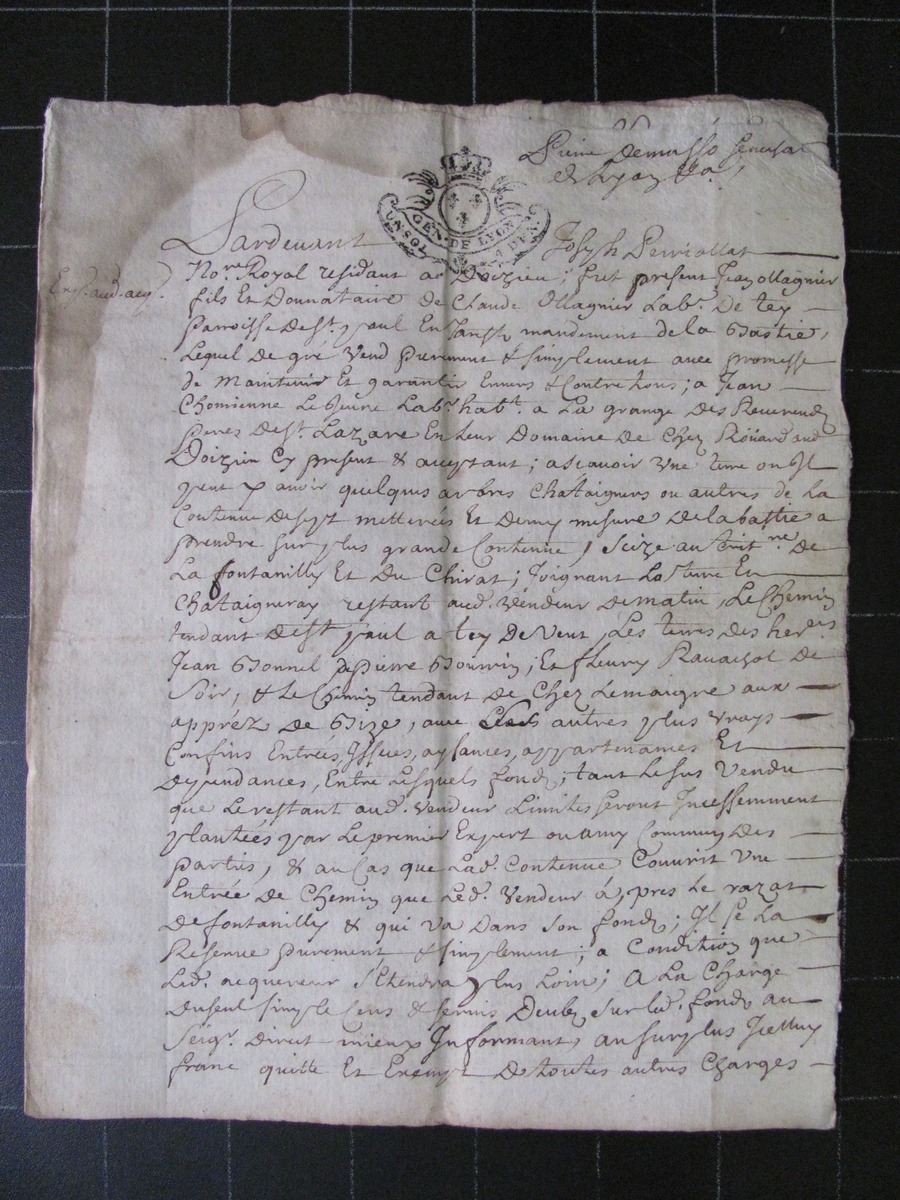 Pierre Demasso
UN SOL GEN. DE LYON 4 DEN.
Pardevant Joseph Perriollat
No.re Royal residant a Doizieu ; fut present Jean ollagnier
Exp. aud. acq.
fils Et Donnataire de Claude Ollagnier Lab.r De tey
Parroisse de St. paul En Jarest mandement de la Bastie,
Lequel de gré Vend purement & simplement avec promesse
de maintenir Et garantir Envers & Contre tous ; a Jean
Chomienne Le Jeune Lab.r hab.t a La grange des Reverends
peres de St. Lazare En leur Domaine de Chez Roüard aud.
Doizieu Cy present & acceptant ; ascavoir Une terre ou Il
peut y avoir quelques arbres Chataigners ou autres de la
Contenue de sept metterées Et Demy mesure de la bastie a
prendre sur plus grande Contenue, size au territ.re De
La fontanilly Et Du Chirat ; Joignant La terre Et
Chataigneray restant aud. Vendeur De matin, Le Chemin
tendant de St. paul a tey De Vent, Les terres des her.rs
Jean Bonnel Pierre Bourrin ; Et fleury Ravachol de
Soir, & Le Chemin tendant de Chez Lemaigre aux
appréz de Bize, avec Ses autres plus Vrays
Confins Entrées, Issües, aysances, appartenances Et
Dependances, Entre Lesquels fonds ; tant Le sus Vendu
que Le restant aud. Vendeur Limites seront Incessemment
plantées par Le premier Expert ou amy Commun Des
partis, & au Cas que Lad. Contenue Couvrit Une
Entrée de Chemin que Led. Vendeur à, pres Le razat
De fontanilly & qui va Dans Son fond ; Il se La
Reserve purement & simplement ; a Condition que
Led. acquereur s'Etendra plus Loin ; A La Charge
Du seul simple Cens & servis Deubs Sur led. fonds au
Seig.r Direct mieux Informant, au surplus Jcelluy
franc quitte Et Exempt De toutes autres Charges